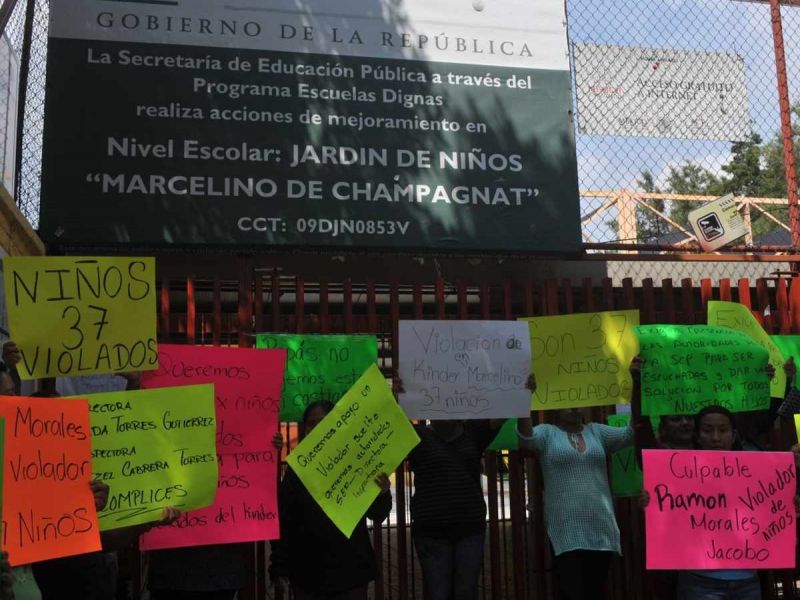 GOBIERNO DE LA REPÚBLICA
La Secretaría de Educación Pública a través del
Programa Escuelas Dignas
realiza acciones de mejoramiento en
Nivel Escolar: JARDIN DE NIÑOS
“MARCELINO DE CHAMPAGNAT”
CCT: 09DJN0853V
MÉXICO
ACCESO GRATUITO
INTERNET
NIÑOS
37
VIOLADOS
Morales
Violador
Niños
TORRES GUTIERREZ
CABRERA TORRES
COMPLICES
Queremos
niños
del Kinder
no
Queremos apoyo un
Violador suelto
queremos autoridades
SEP-Directora
Violación de
en
Kinder Marcelino
37 niños
Son 37
NIÑOS
VIOLADOS
SEP PARA SER
ESCUCHADAS Y DAR
SOLUCION POR
NUESTROS HIJOS
Culpable
Ramon Violador
Morales de niños
Jacobo